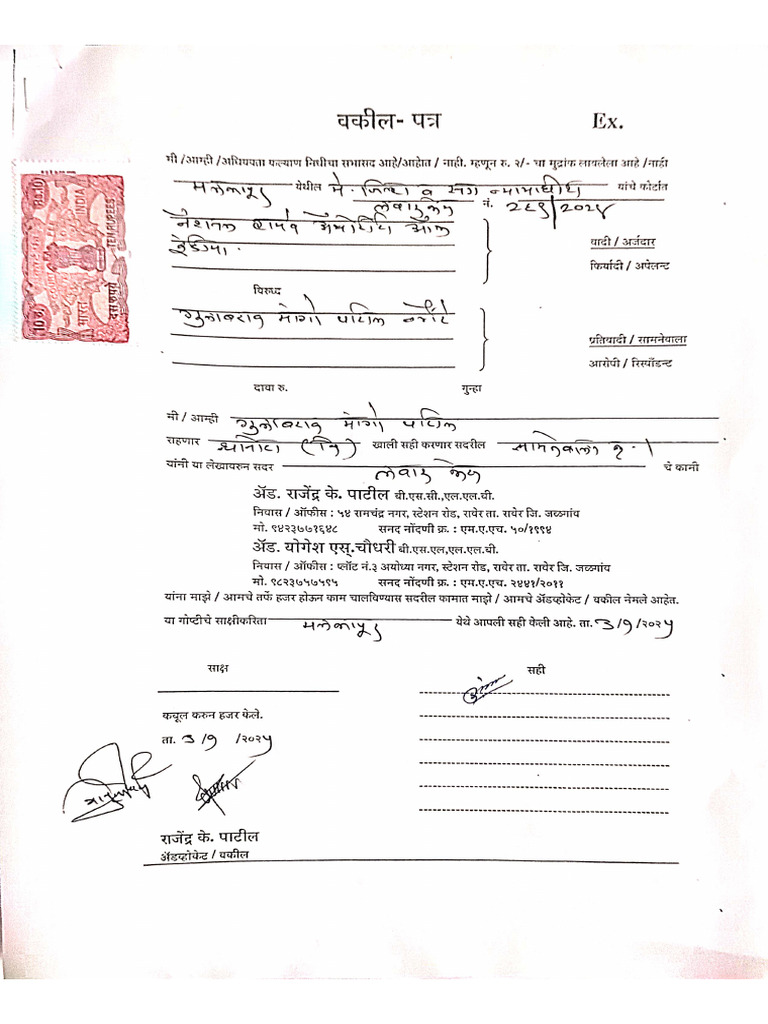 वकील- पत्र Ex.
मी /आम्ही /अधिवक्ता कल्याण निधीचा सभासद आहे/आहोत / नाही. म्हणून रु. २/- चा मुद्रांक लावलेला आहे /नाही
मलकापूर येथील मे. जिल्हा व सत्र न्यायाधीश यांचे कोर्टात
लवाद केस नं. २८९/२०२४
नॅशनल हायवे अॅथोरिटी ऑफ वादी / अर्जदार
इंडिया. फिर्यादी / अपेलन्ट
विरुध्द
गुलाबराव मांगो पाटील वगैरे प्रतिवादी / सामनेवाला
आरोपी / रिस्पाँडन्ट
दावा रु. गुन्हा
मी / आम्ही गुलाबराव मांगो पाटील
राहणार खाली सही करणार सदरील सामनेवाला नं. १
यांनी या लेखावरुन सदर लवाद केस चे कामी
ॲड. राजेंद्र के. पाटील बी.एस.सी.,एल.एल.बी.
निवास / ऑफीस : ५४ रामचंद्र नगर, स्टेशन रोड, रावेर ता. रावेर जि. जळगांव
मो. ९४२३७७१६४८ सनद नोंदणी क्र. : एम.ए.एच. ५०/१९९४
ॲड. योगेश एस्.चौधरी बी.एस.एल,एल.एल.बी.
निवास / ऑफीस : प्लॉट नं.३ अयोध्या नगर, स्टेशन रोड, रावेर ता. रावेर जि. जळगांव
मो. ९८२३७५७५९५ सनद नोंदणी क्र. : एम.ए.एच. २४४१/२०११
यांना माझे / आमचे तर्फे हजर होऊन काम चालविण्यास सदरील कामात माझे / आमचे ॲडव्होकेट / वकील नेमले आहेत.
या गोष्टीचे साक्षीकरिता मलकापूर येथे आपली सही केली आहे. ता. ३/९/२०२५
साक्ष सही
कबूल करुन हजर केले.
ता. ३/९/२०२५
राजेंद्र के. पाटील
ॲडव्होकेट / वकील
Rs.10
INDIA
TEN RUPEES
भारत
दस रुपये